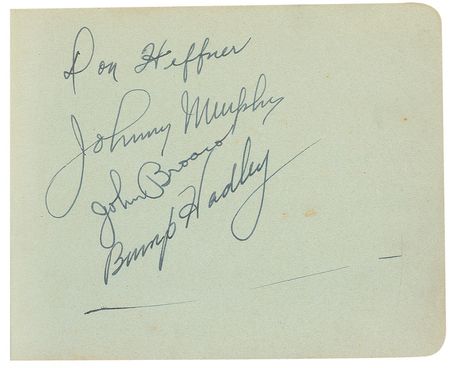 Don Heffner
Johnny Murphy
John Broaca
Bump Hadley